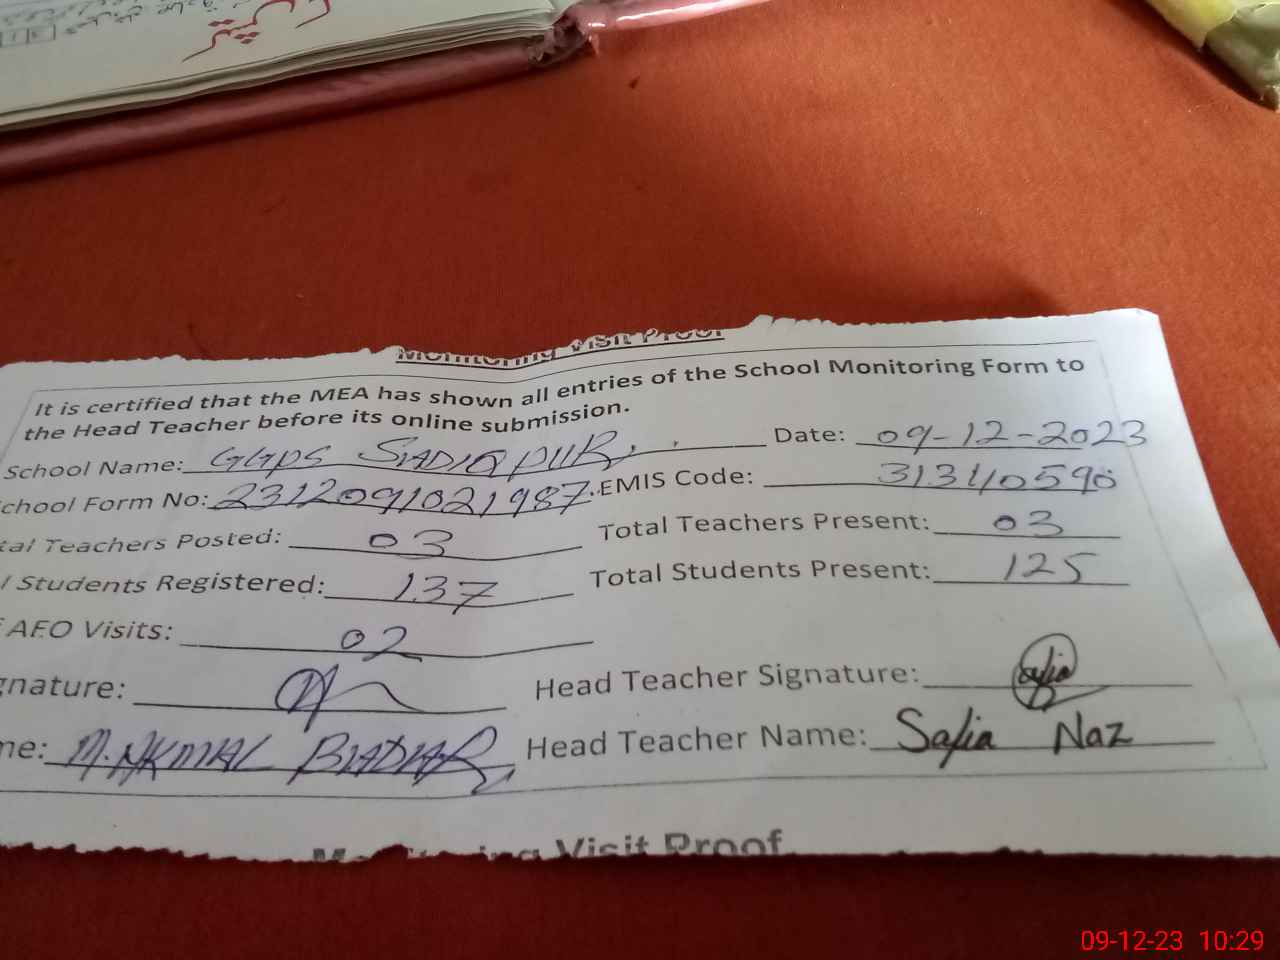 Monitoring Visit Proof
It is certified that the MEA has shown all entries of the School Monitoring Form to
the Head Teacher before its online submission.
School Name: GGPS SIADIQPUR Date: 09-12-2023
chool Form No: 2312091021987 EMIS Code: 31340590
tal Teachers Posted: 03 Total Teachers Present: 03
l Students Registered: 137 Total Students Present: 125
AEO Visits: 02
gnature: Head Teacher Signature: Safia
me: M. AKMAL Head Teacher Name: Safia Naz
Monitoring Visit Proof
09-12-23 10:29